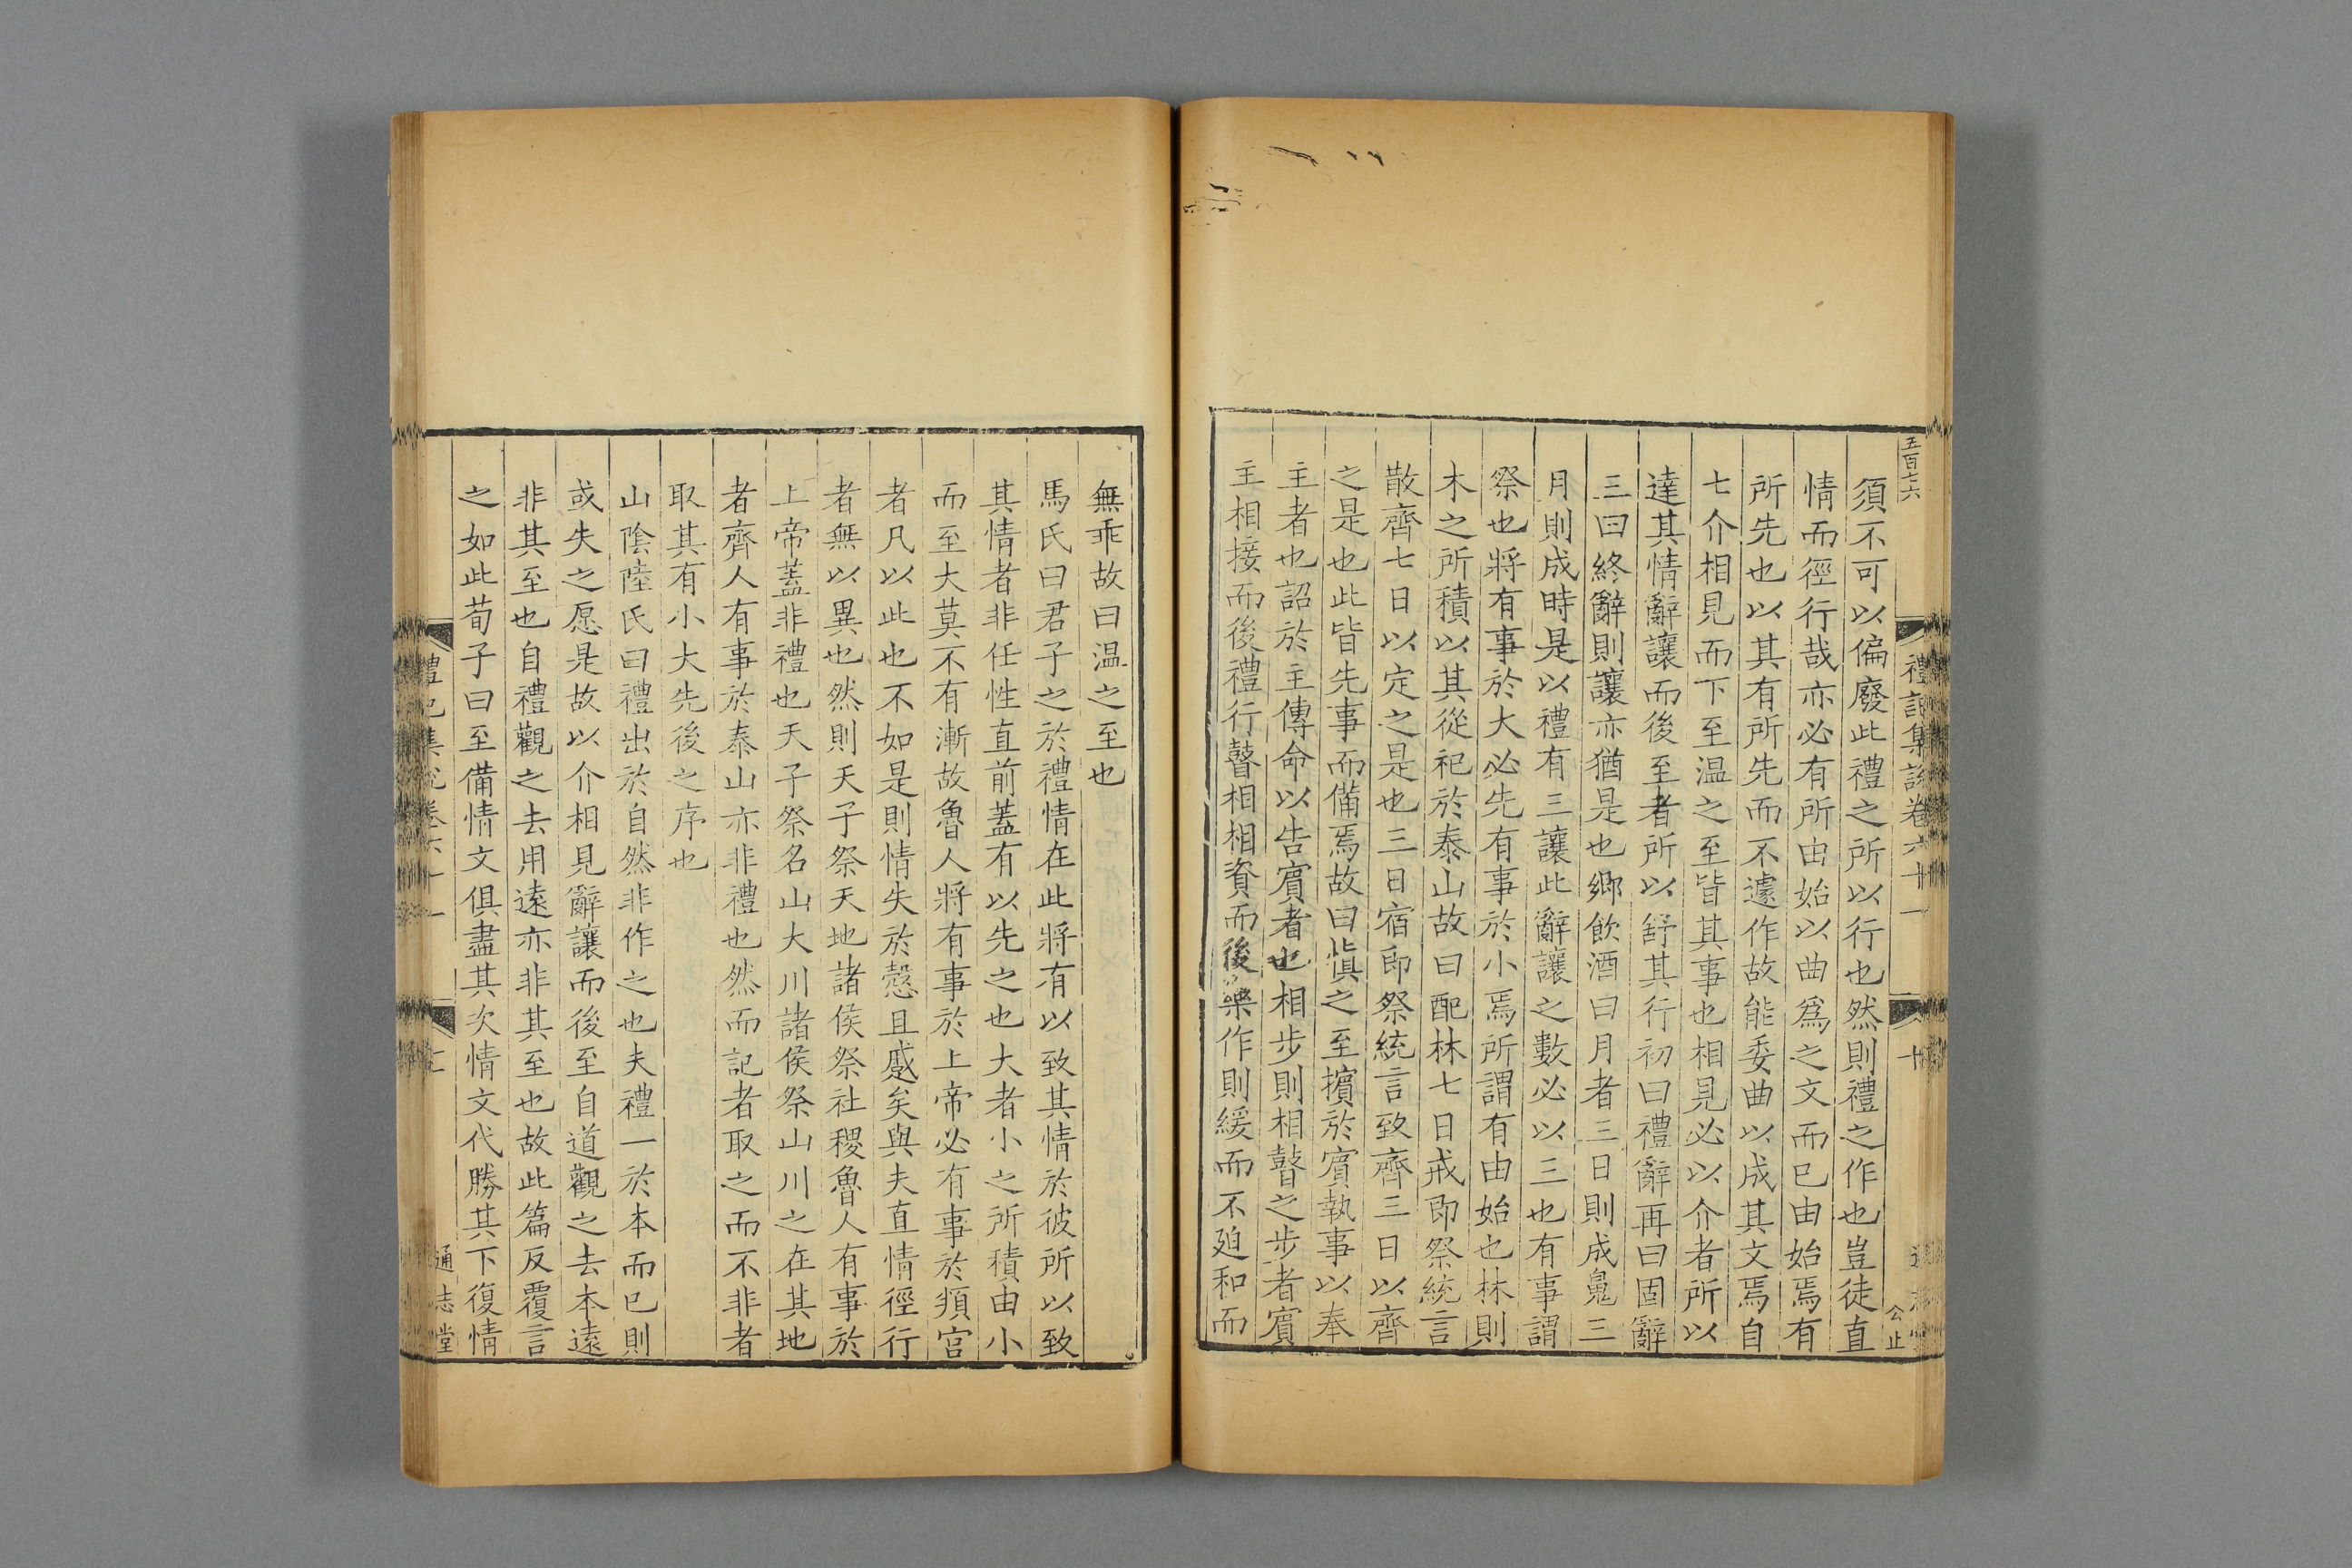 五百六
禮記集說卷六十一
十
公止
須不可以偏廢此禮之所以行也然則禮之作也豈徒直
情而徑行哉亦必有所由始以曲爲之文而已由始焉有
所先也以其有所先而不遽作故能委曲以成其文焉自
七介相見而下至温之至皆其事也相見必以介者所以
達其情辭讓而後至者所以舒其行初曰禮辭再曰固辭
三曰終辭則讓亦猶是也鄉飲酒曰月者三日則成魄三
月則成時是以禮有三讓此辭讓之數必以三也有事謂
祭也將有事於大必先有事於小焉所謂有由始也林則
木之所積以其從祀於泰山故曰配林七日戒即祭統言
散齊七日以定之是也三日宿即祭統言致齊三日以齊
之是也此皆先事而備焉故曰愼之至擯於賓執事以奉
主者也詔於主傳命以告賓者也相步則相瞽之步者賓
主相接而後禮行瞽相相資而後樂作則緩而不廹和而
無乖故曰温之至也
馬氏曰君子之於禮情在此將有以致其情於彼所以致
其情者非任性直前蓋有以先之也大者小之所積由小
而至大莫不有漸故魯人將有事於上帝必有事於頖宮
者凡以此也不如是則情失於慤且蹙矣與夫直情徑行
者無以異也然則天子祭天地諸侯祭社稷魯人有事於
上帝蓋非禮也天子祭名山大川諸侯祭山川之在其地
者齊人有事於泰山亦非禮也然而記者取之而不非者
取其有小大先後之序也
山陰陸氏曰禮出於自然非作之也夫禮一於本而已則
或失之愿是故以介相見辭讓而後至自道觀之去本遠
非其至也自禮觀之去用遠亦非其至也故此篇反覆言
之如此荀子曰至備情文俱盡其次情文代勝其下復情
禮記集說卷六十一
通志堂